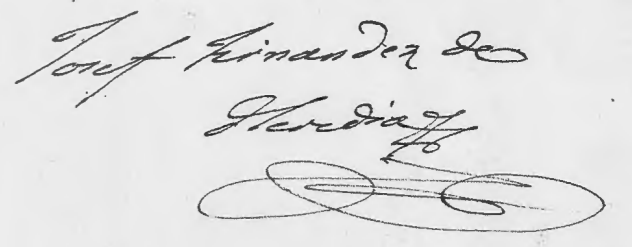 Josef Fernandez de
Heredia